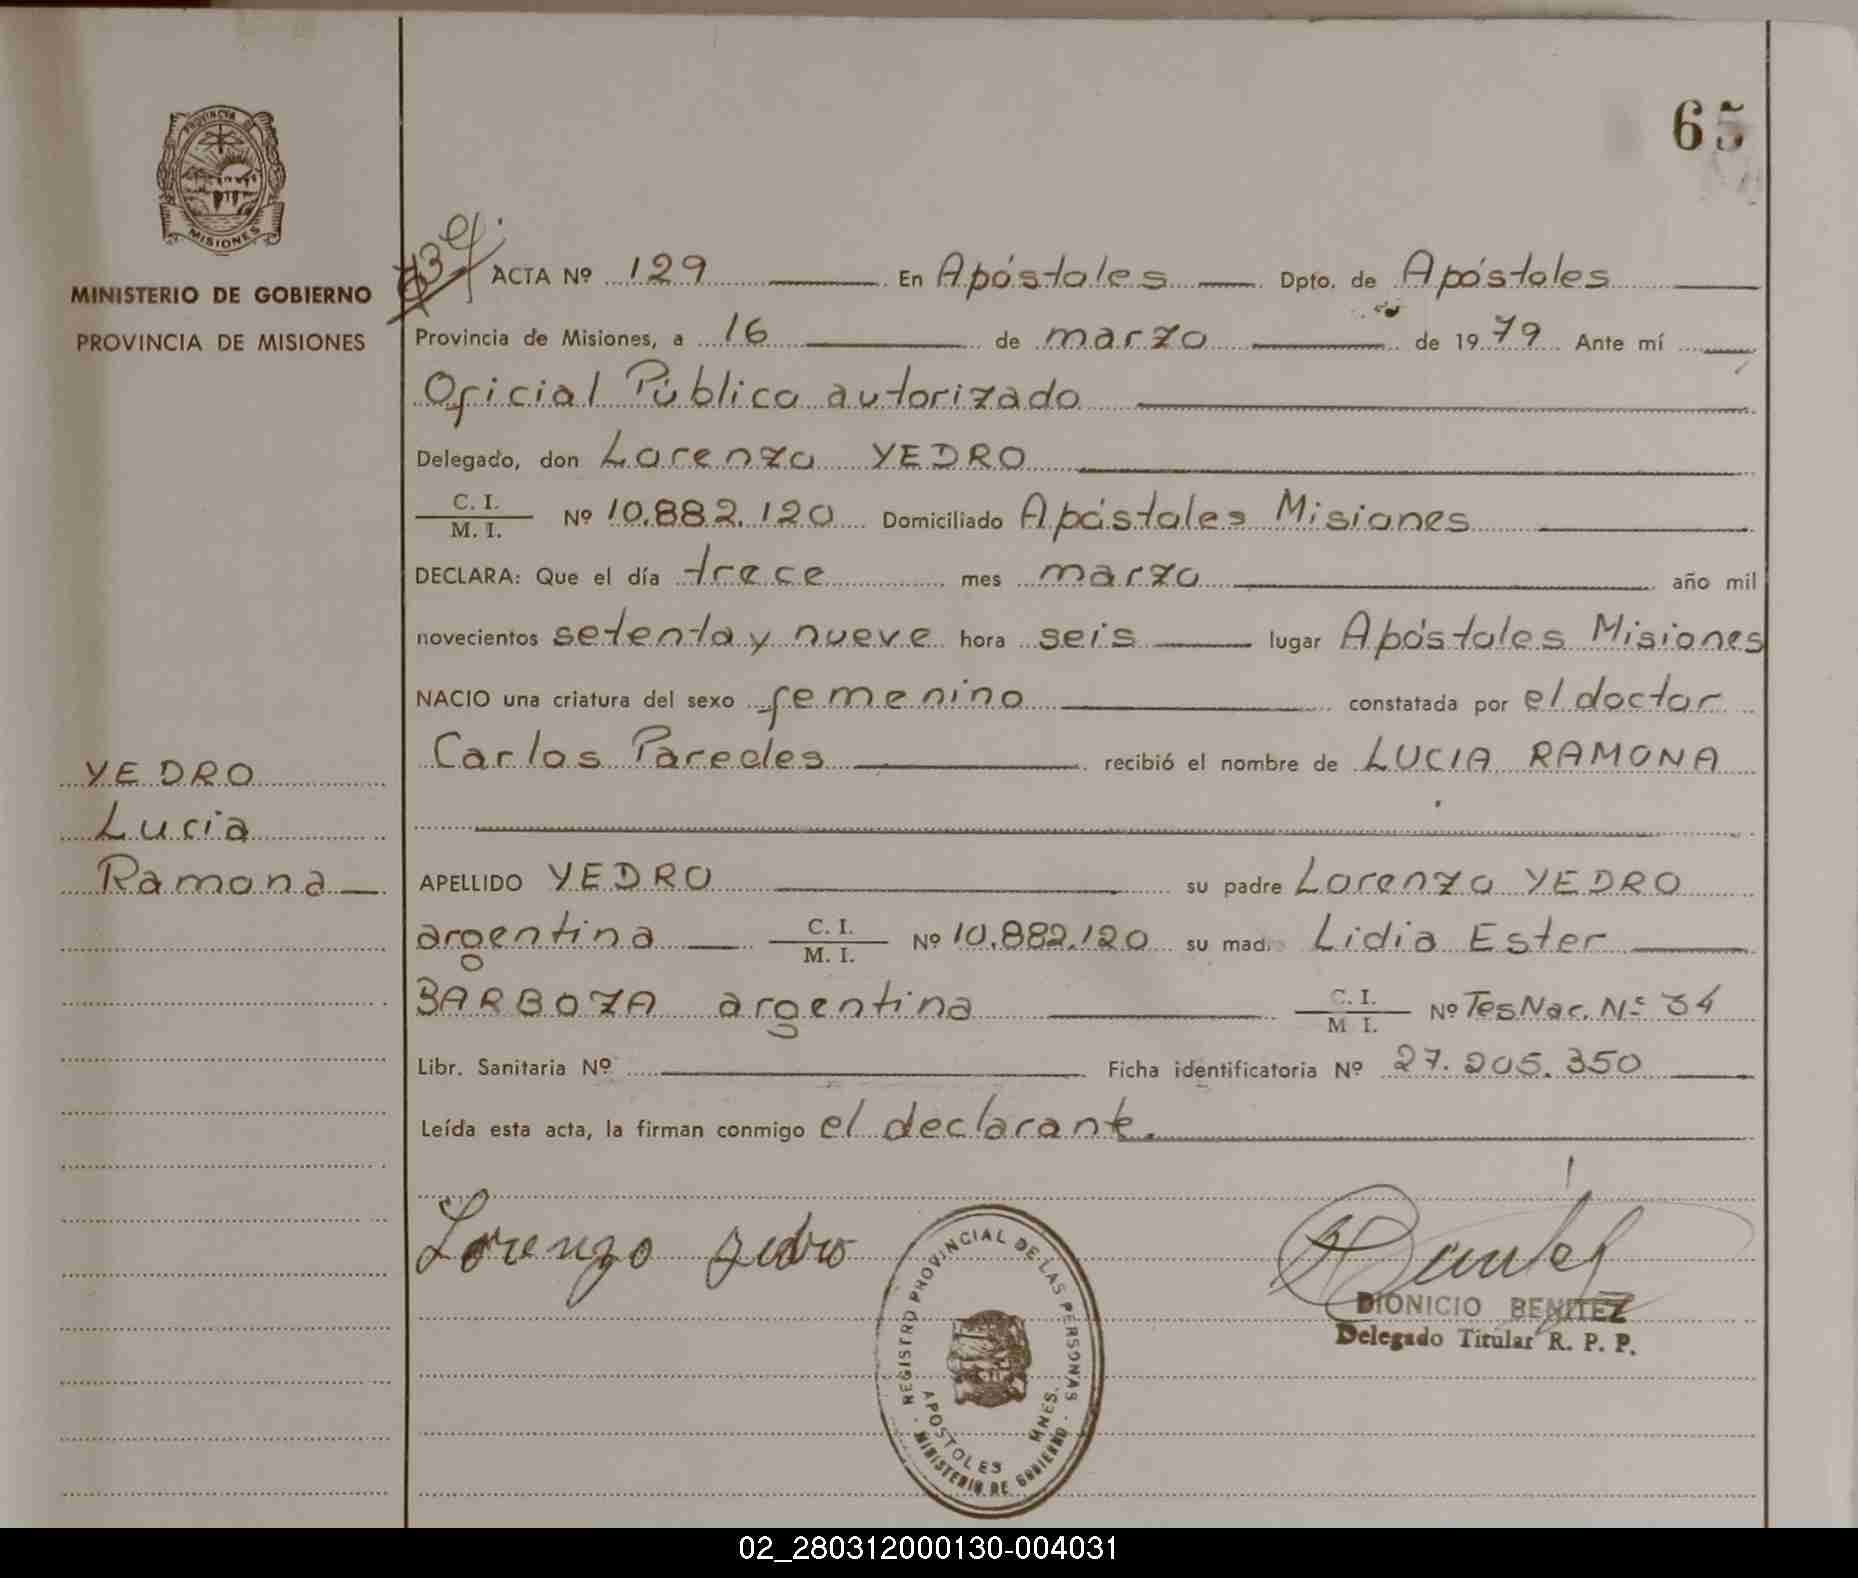 65
PROVINCIA DE
MISIONES
MINISTERIO DE GOBIERNO
PROVINCIA DE MISIONES
ACTA Nº 129 En Apóstoles Dpto. de Apóstoles
Provincia de Misiones, a 16 de marzo de 1979 Ante mí
Oficial Público autorizado
Delegado, don Lorenzo YEDRO
C. I.
M. I. Nº 10.882.120 Domiciliado Apóstoles Misiones
DECLARA: Que el día trece mes marzo año mil
novecientos setenta y nueve hora seis lugar Apóstoles Misiones
NACIO una criatura del sexo femenino constatada por el doctor
Carlos Paredes recibió el nombre de LUCIA RAMONA
YEDRO
Lucia
Ramona
APELLIDO YEDRO su padre Lorenzo YEDRO
argentina C. I.
M. I. Nº 10.882.120 su mad. Lidia Ester
BARBOZA argentina C. I.
M I. Nº Tes Nac. Nº 34
Libr. Sanitaria Nº Ficha identificatoria Nº 27.205.350
Leída esta acta, la firman conmigo el declarante.
Lorenzo Yedro
REGISTRO PROVINCIAL DE LAS PERSONAS
APOSTOLES MNES.
MINISTERIO DE GOBIERNO
DIONICIO BENITEZ
Delegado Titular R. P. P.
02_280312000130-004031